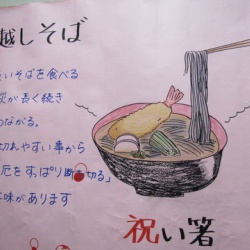 越しそば
いそばを食べる
が長く続き
つながる。
切れやすい事から
厄をすっぱり断ち切る」
味があります
祝い箸